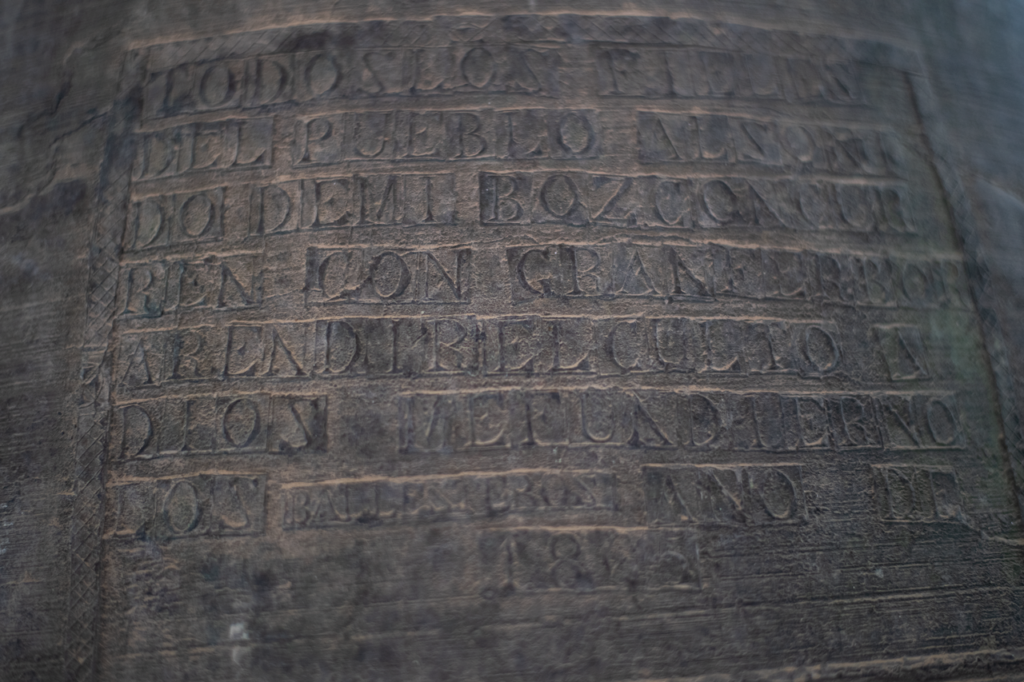 TODOS LOS FIELES
DEL PUEBLO AL SONI
DO DE MI BOZ CONCUR
REN CON GRAN FERBOR
A RENDIR EL CULTO A
DIOS ME FUNDIERNO
LOS BALLESTEROS ANO DE